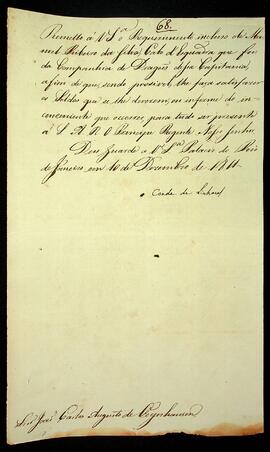 68.
Remetto á V. S.ª o Requerimento incluso de Ma
noel Ribeiro da Silva, Cabo d'Esquadra que foi
da Companhia de Dragões dessa Capitania,
a fim de que, sendo possivel, lhe faça satisfazer
os Soldos que se lhe deverem, ou informe do in-
conveniente que occorrer para tudo ser presente
á S. A. R. O Principe Regente Nosso Senhor.
Deos Guarde a V. S.ª Palacio do Rio
de Janeiro em 10 de Dezembro de 1811
Conde de Linhares
Sen.r João Carlos Augusto de Oeynhausen